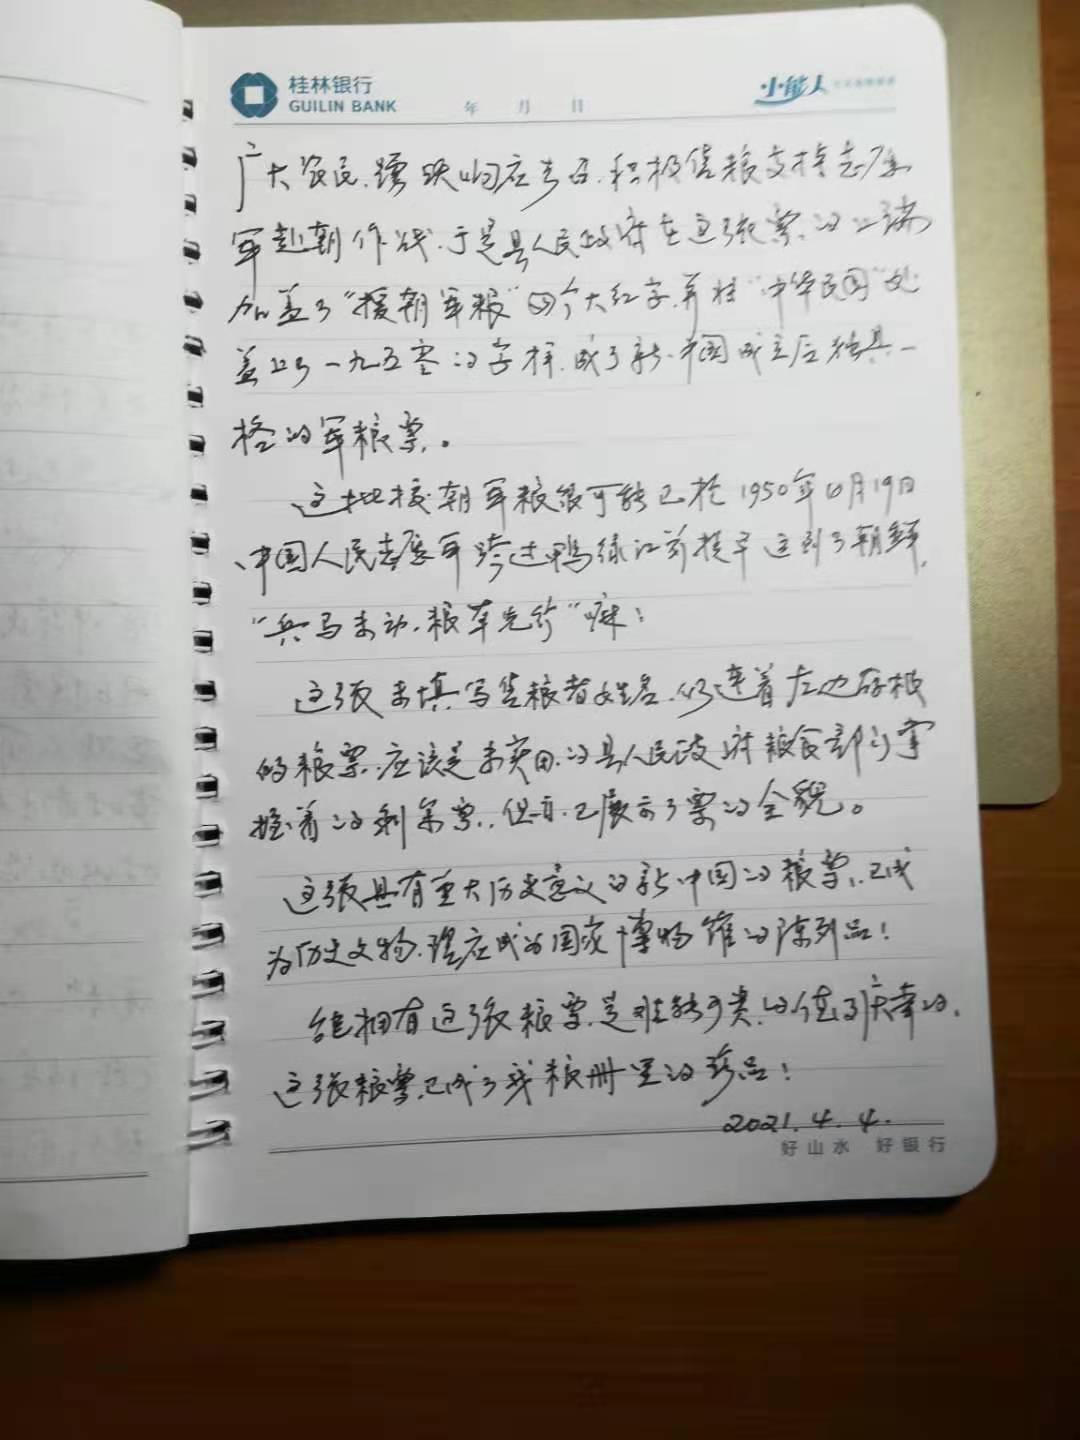 桂林银行
GUILIN BANK
年 月 日
小能人
广大农民踊跃响应号召,积极售粮支持志愿
军赴朝作战,于是县人民政府在这张票的上端
加盖了“援朝军粮”四个大红字,并在“中华民国”处
盖上了一九五零的字样,成了新中国成立后独具一
格的军粮票。
这批援朝军粮很可能已于1950年10月19日
中国人民志愿军跨过鸭绿江前提早运到了朝鲜,
“兵马未动,粮草先行”嘛!
这张未填写售粮者姓名,仍连着左边存根
的粮票,应该是未实用的县人民政府粮食部门掌
握着的剩余票,但亦已展示了票的全貌。
这张具有重大历史意义的新中国的粮票,已成
为历史文物,理应成为国家博物馆的陈列品!
能拥有这张粮票,是难能可贵的值得庆幸的,
这张粮票已成了我粮册里的珍品!
2021.4.4.
好山水 好银行